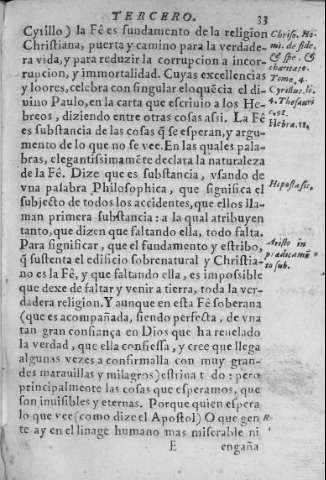 TERCERO.
33
Cyrillo) la Fê es fundamento de la religion
Christiana, puerta y camino para la verdade-
ra vida, y para reduzir la corrupcion a incor-
rupcion, y immortalidad. Cuyas excellencias
y loores, celebra con singular eloquẽcia el di-
vino Paulo, en la carta que escriuio a los He-
breos, diziendo entre otras cosas assi. La Fê
es substancia de las cosas q̃ se esperan, y argu-
mento de lo que no se vee. En las quales pala-
bras, clegantissimamẽte declara la naturaleza
de la Fê. Dize que es substancia, vsando de
vna palabra Philosophica, que significa el
subjecto de todos los accidentes, que ellos lla-
man primera substancia: a la qual atribuyen
tanto, que dizen que faltando ella, todo falta.
Para significar, que el fundamento y estribo,
q̃ sustenta el edificio sobrenatural y Christia-
no es la Fê, y que faltando ella, es impossible
que dexe de faltar y venir a tierra, toda la ver-
dadera religion. Y aunque en esta Fê soberana
(que es acompañada, siendo perfecta, de vna
tan gran confiança en Dios que ha reuelado
la verdad, que ella confiessa, y cree que llega
algunas vezes a confirmalla con muy gran-
des marauillas y milagros) estriua t do: pero
principalmente las cosas que esperamos, que
son inuisibles y eternas. Porque quien espera
lo que vee (como dize el Apostol) O que gen
te ay en el linage humano mas miserable ni
E engaña
Chriso. Ho-
mi. de fide,
& spe. &
charitate.
Tomo. 4.
Cyrillus. li.
4. Thesauri
Hebra. 11.
Hipostasis,
Aristo in
prædicamẽ
to sub.